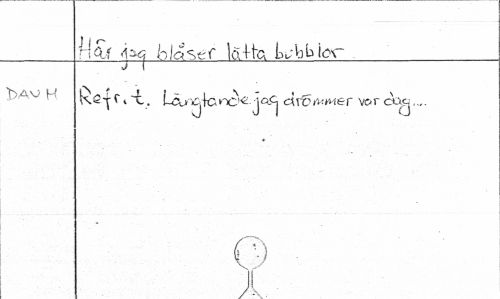 Här jag blåser lätta bubblor
DAUM Refr. t. Längtande jag drömmer var dag...